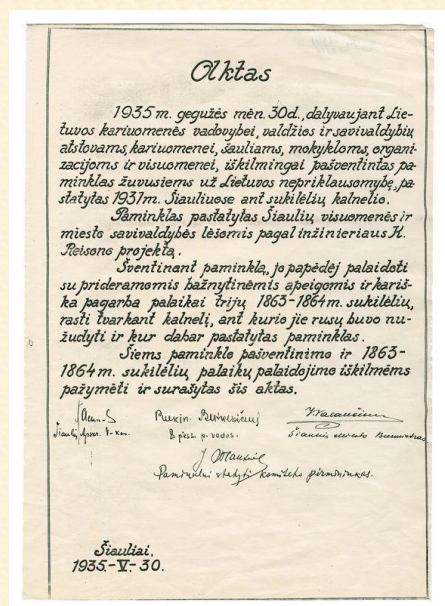 Aktas
1935 m. gegužės mėn. 30 d., dalyvaujant Lie-
tuvos kariuomenės vadovybei, valdžios ir savivaldybių
atstovams, kariuomenei, šauliams, mokykloms, organi-
zacijoms ir visuomenei, iškilmingai pašventintas pa-
minklas žuvusiems už Lietuvos nepriklausomybę, pa-
statytas 1931 m. Šiauliuose ant sukilėlių kalnelio.
Paminklas pastatytas Šiaulių visuomenės ir
miesto savivaldybės lėšomis pagal inžinieriaus K.
Reisono projektą.
Šventinant paminklą, jo papėdėj palaidoti
su prideramomis bažnytinėmis apeigomis ir kariš-
ka pagarba palaikai trijų 1863-1864 m. sukilėlių,
rasti tvarkant kalnelį, ant kurio jie rusų buvo nu-
žudyti ir kur dabar pastatytas paminklas.
Šiems paminklo pašventinimo ir 1863-
1864 m. sukilėlių palaikų palaidojimo iškilmėms
pažymėti ir surašytas šis aktas.
8 pėst. p. vadas.
Šiaulių miesto Burmistras
Paminklui statyti komiteto pirmininkas.
Šiauliai,
1935.-V-30.